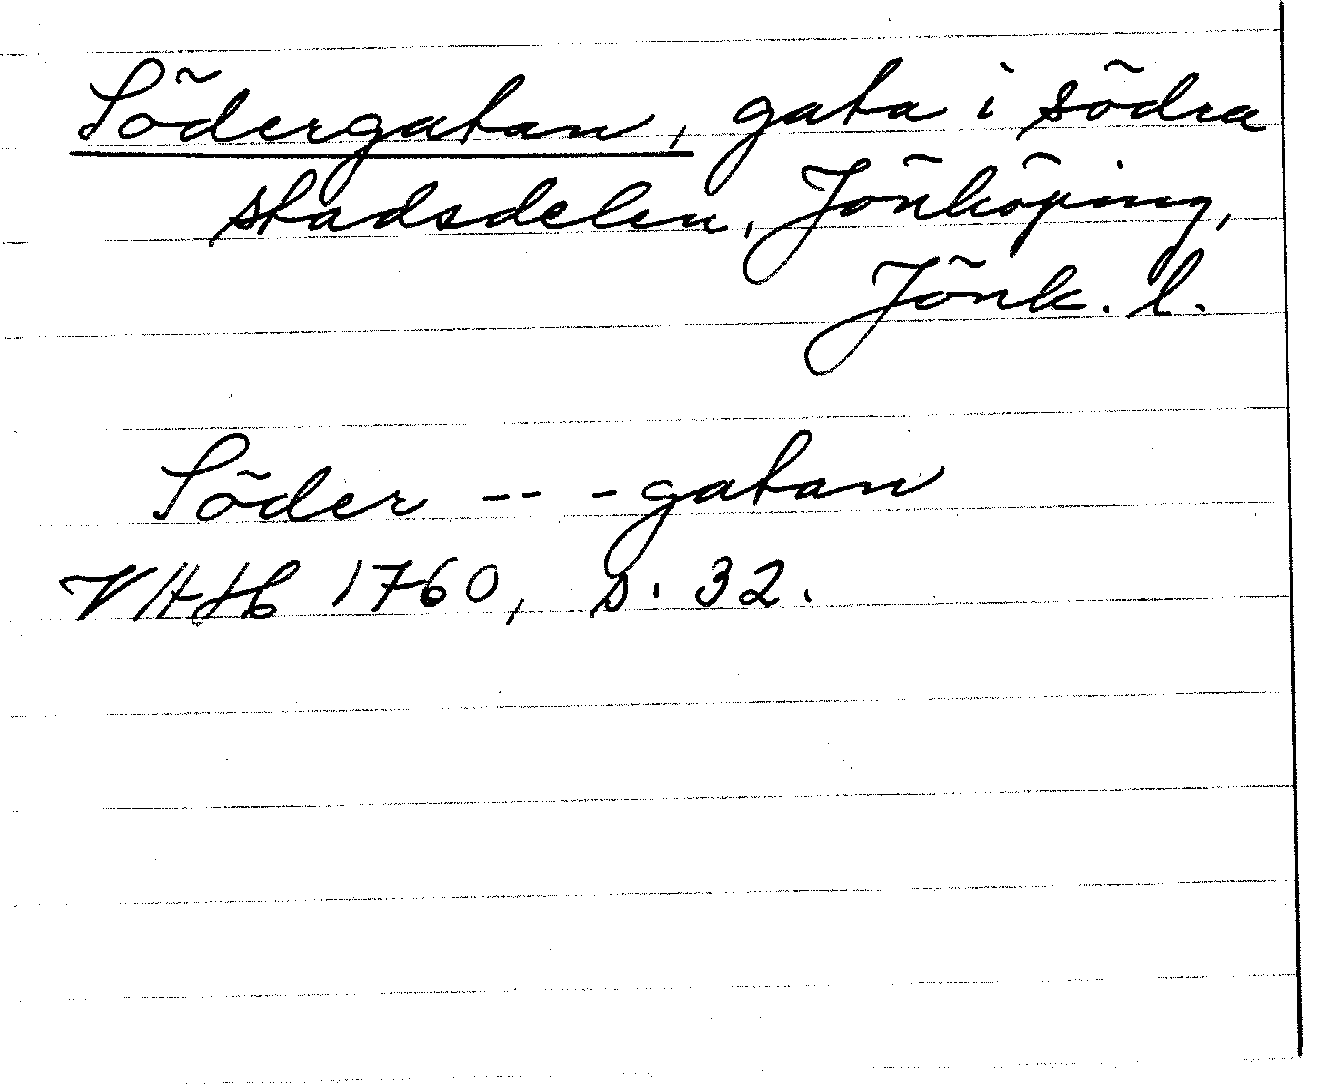 Södergatan, gata i södra
stadsdelen, Jönköping,
Jönk. l.
Söder -- - gatan
VHH 1760, s. 32.